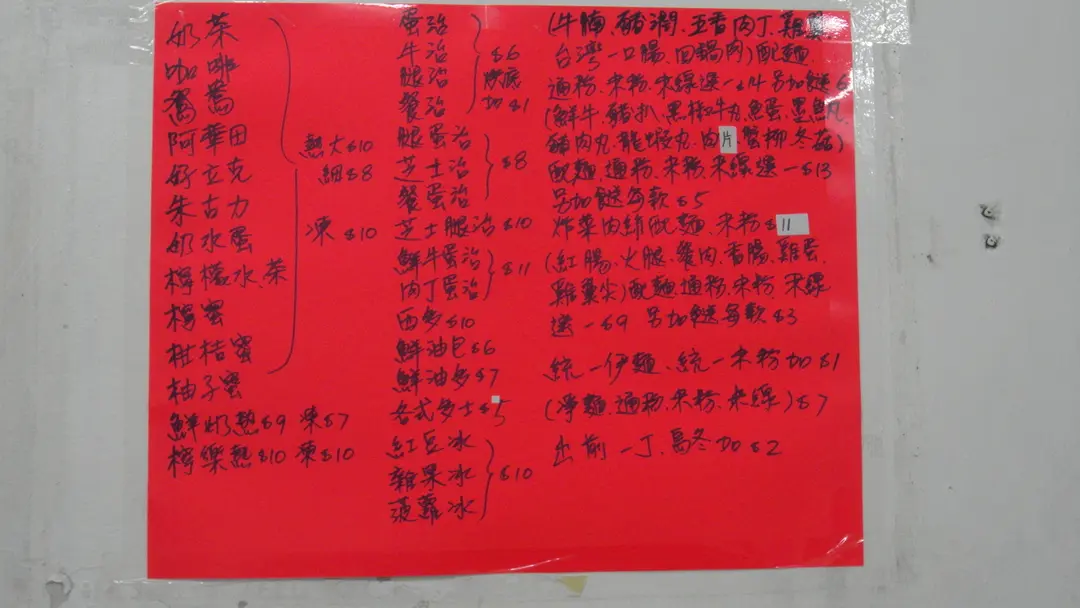 奶茶
咖啡
鴛鴦
阿華田
好立克
朱古力
奶水蛋
檸檬水、茶
檸蜜
柑桔蜜
柚子蜜
熱大$10
細$8
凍$10
鮮奶熱$9 凍$7
檸樂熱$10 凍$10
蛋治
牛治
腿治
餐治
$6
烘底
加$1
腿蛋治
芝士治
餐蛋治
$8
芝士腿治$10
鮮牛蛋治
肉丁蛋治
$11
西多$10
鮮油包$6
鮮油多$7
各式多士$5
紅豆冰
雜果冰
菠蘿冰
$10
(牛腩、豬潤、五香肉丁、雞翼
台灣一口腸、回鍋肉)配麵、
通粉、米粉、米線選一$14 另加餸6
(鮮牛、豬扒、黑椒牛丸、魚蛋、墨魚丸、
豬肉丸、龍蝦丸、肉片、蟹柳、冬菇)
配麵、通粉、米粉、米線選一$13
另加餸每款$5
炸菜肉絲配麵、米粉$11
(紅腸、火腿、餐肉、香腸、雞蛋、
雞翼尖)配麵、通粉、米粉、米線
選一$9 另加餸每款$3
統一伊麵、統一米粉加$1
(淨麵、通粉、米粉、米線)$7
出前一丁、烏冬加$2